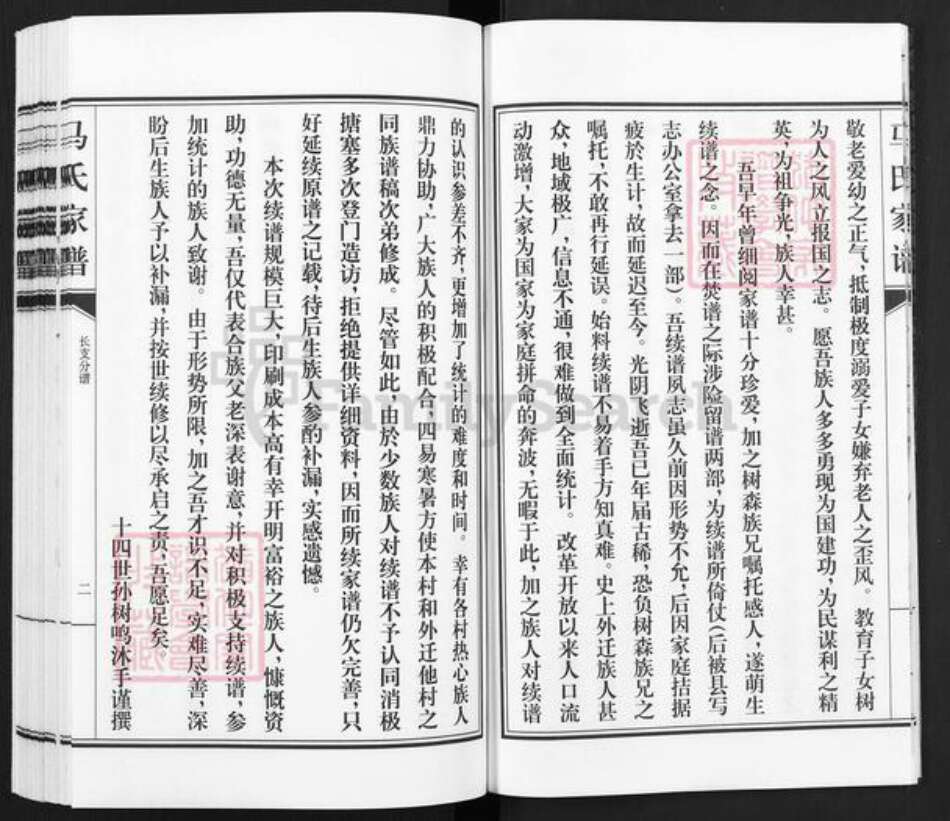 敬老爱幼之正气，抵制极度溺爱子女嫌弃老人之歪风。教育子女树
为人之风立报国之志。愿吾族人多多勇现为国建功，为民谋利之精
英，为祖争光，族人幸甚。
吾早年曾细阅家谱十分珍爱，加之树森族兄嘱托感人，遂萌生
续谱之念。因而在焚谱之际涉险留谱两部，为续谱所倚仗（后被县写
志办公室拿去一部）。吾续谱夙志虽久前因形势不允，后因家庭拮据
疲於生计，故而延迟至今。光阴飞逝吾已年届古稀，恐负树森族兄之
嘱托，不敢再行延误。始料续谱不易着手方知真难。史上外迁族人甚
众，地域极广，信息不通，很难做到全面统计。改革开放以来人口流
动激增，大家为国家为家庭拼命的奔波，无暇于此，加之族人对续谱
的认识参差不齐，更增加了统计的难度和时间。幸有各村热心族人
鼎力协助，广大族人的积极配合，四易寒暑方使本村和外迁他村之
同族谱稿次弟修成。尽管如此，由於少数族人对续谱不予认同消极
搪塞多次登门造访，拒绝提供详细资料，因而所续家谱仍欠完善，只
好延续原谱之记载，待后生族人参酌补漏，实感遗憾。
本次续谱规模巨大，印刷成本高有幸开明富裕之族人，慷慨资
助，功德无量，吾仅代表合族父老深表谢意，并对积极支持续谱，参
加统计的族人致谢。由于形势所限，加之吾才识不足，实难尽善，深
盼后生族人予以补漏，并按世续修以尽承启之责，吾愿足矣。
十四世孙树鸣沐手谨撰
马氏家谱
长支分谱
二
FamilySearch